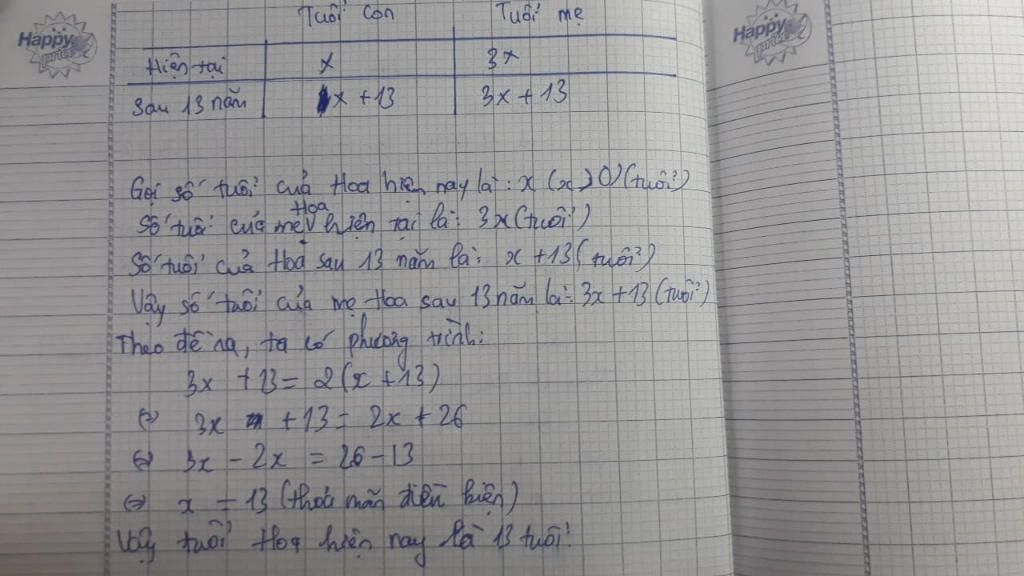 Happy
Happy
Tuổi con Tuổi mẹ
Hiện tại x 3x
Sau 13 năm x + 13 3x + 13
Gọi số tuổi của Hoa hiện nay là: x (x > 0) (tuổi)
Số tuổi của mẹ Hoa hiện tại là: 3x (tuổi)
Số tuổi của Hoa sau 13 năm là: x + 13 (tuổi)
Vậy số tuổi của mẹ Hoa sau 13 năm là: 3x + 13 (tuổi)
Theo đề ra, ta có phương trình:
3x + 13 = 2(x + 13)
(=) 3x + 13 = 2x + 26
(=) 3x - 2x = 26 - 13
(=) x = 13 (thoả mãn điều kiện)
Vậy tuổi Hoa hiện nay là 13 tuổi.